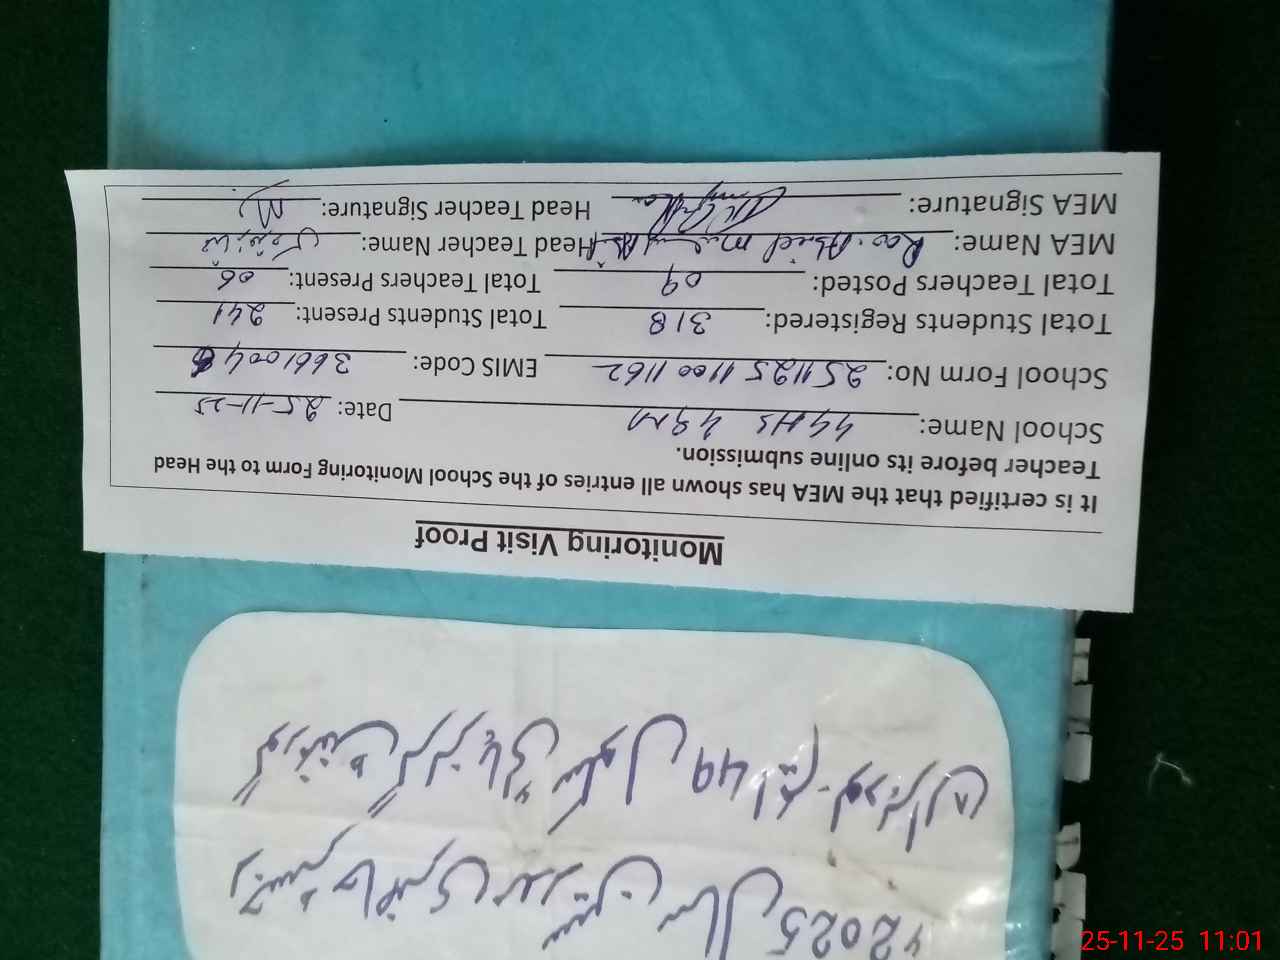 Monitoring Visit Proof
It is certified that the MEA has shown all entries of the School Monitoring Form to the Head
Teacher before its online submission.
School Name: GGHS 49M Date: 25-11-25
School Form No: 25112511001162 EMIS Code:
Total Students Registered: 318 Total Students Present: 241
Total Teachers Posted: 09 Total Teachers Present: 06
MEA Name: Rao Abid Head Teacher Name:
MEA Signature: Head Teacher Signature:
رجسٹر حاضری مدرسین سال 2025ء
گورنمنٹ گرلز ہائی سکول 49 ایم لودھراں
25-11-25 11:01